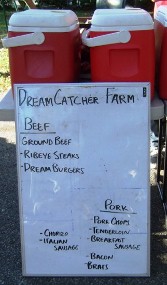 DREAMCATCHER FARM
BEEF
GROUND BEEF
- RIBEYE STEAKS
- DREAM BURGERS
PORK
- PORK CHOPS
- TENDERLOIN
- BREAKFAST SAUSAGE
- BACON
BRATS
- CHORIZO
- ITALIAN SAUSAGE